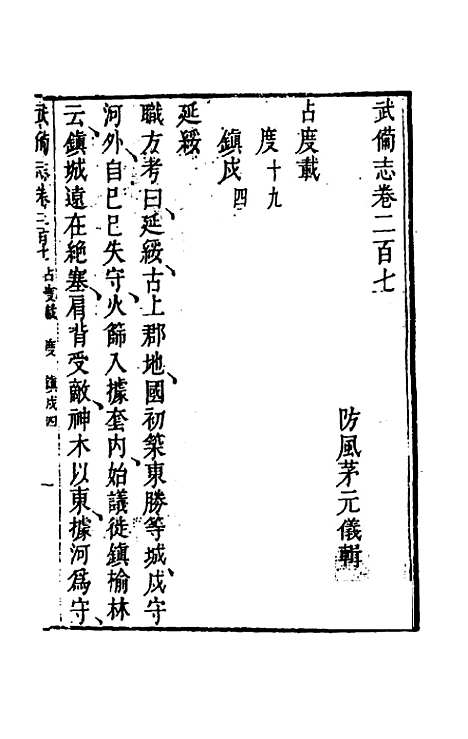 武備志卷二百七
防風茅元儀輯
占度載
度十九
鎮戍四
延綏
職方考曰延綏古上郡地國初築東勝等城戍守
河外自己巳失守火篩入據套內始議徙鎮榆林
云鎮城遠在絶塞肩背受敵神木以東據河爲守
武備志卷二百七 占度載 度 鎮戍四 一